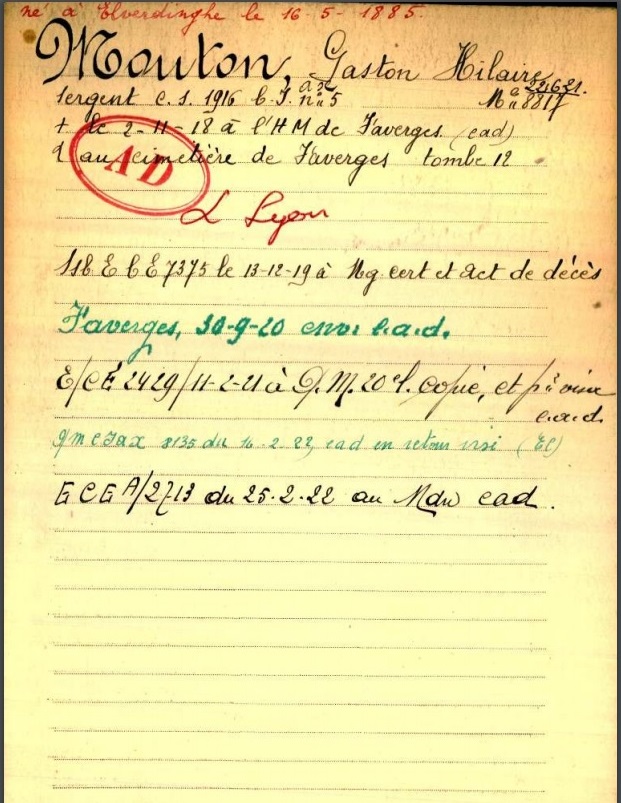 né à Elverdinghe le 16-5-1885.
Mouton, Gaston Hilaire
sergent c. s. 1916 b. I. n° 5
Mle 8817
+ le 2-11-18 à l'HM de Faverges (cad)
au cimetière de Faverges tombe 12
AD
L Lyon
E C E 7375 le 13-12-19 à Mg cert et act de décès
Faverges, 30-9-20 envi c.a.d.
E/CE 2429/11-2-21 à D.M. 20 copie, et
c.a.d.
8135 du 16-2-22, cad en retour visé (EC)
E C E A/2713 du 25-2-22 au Mdw cad.